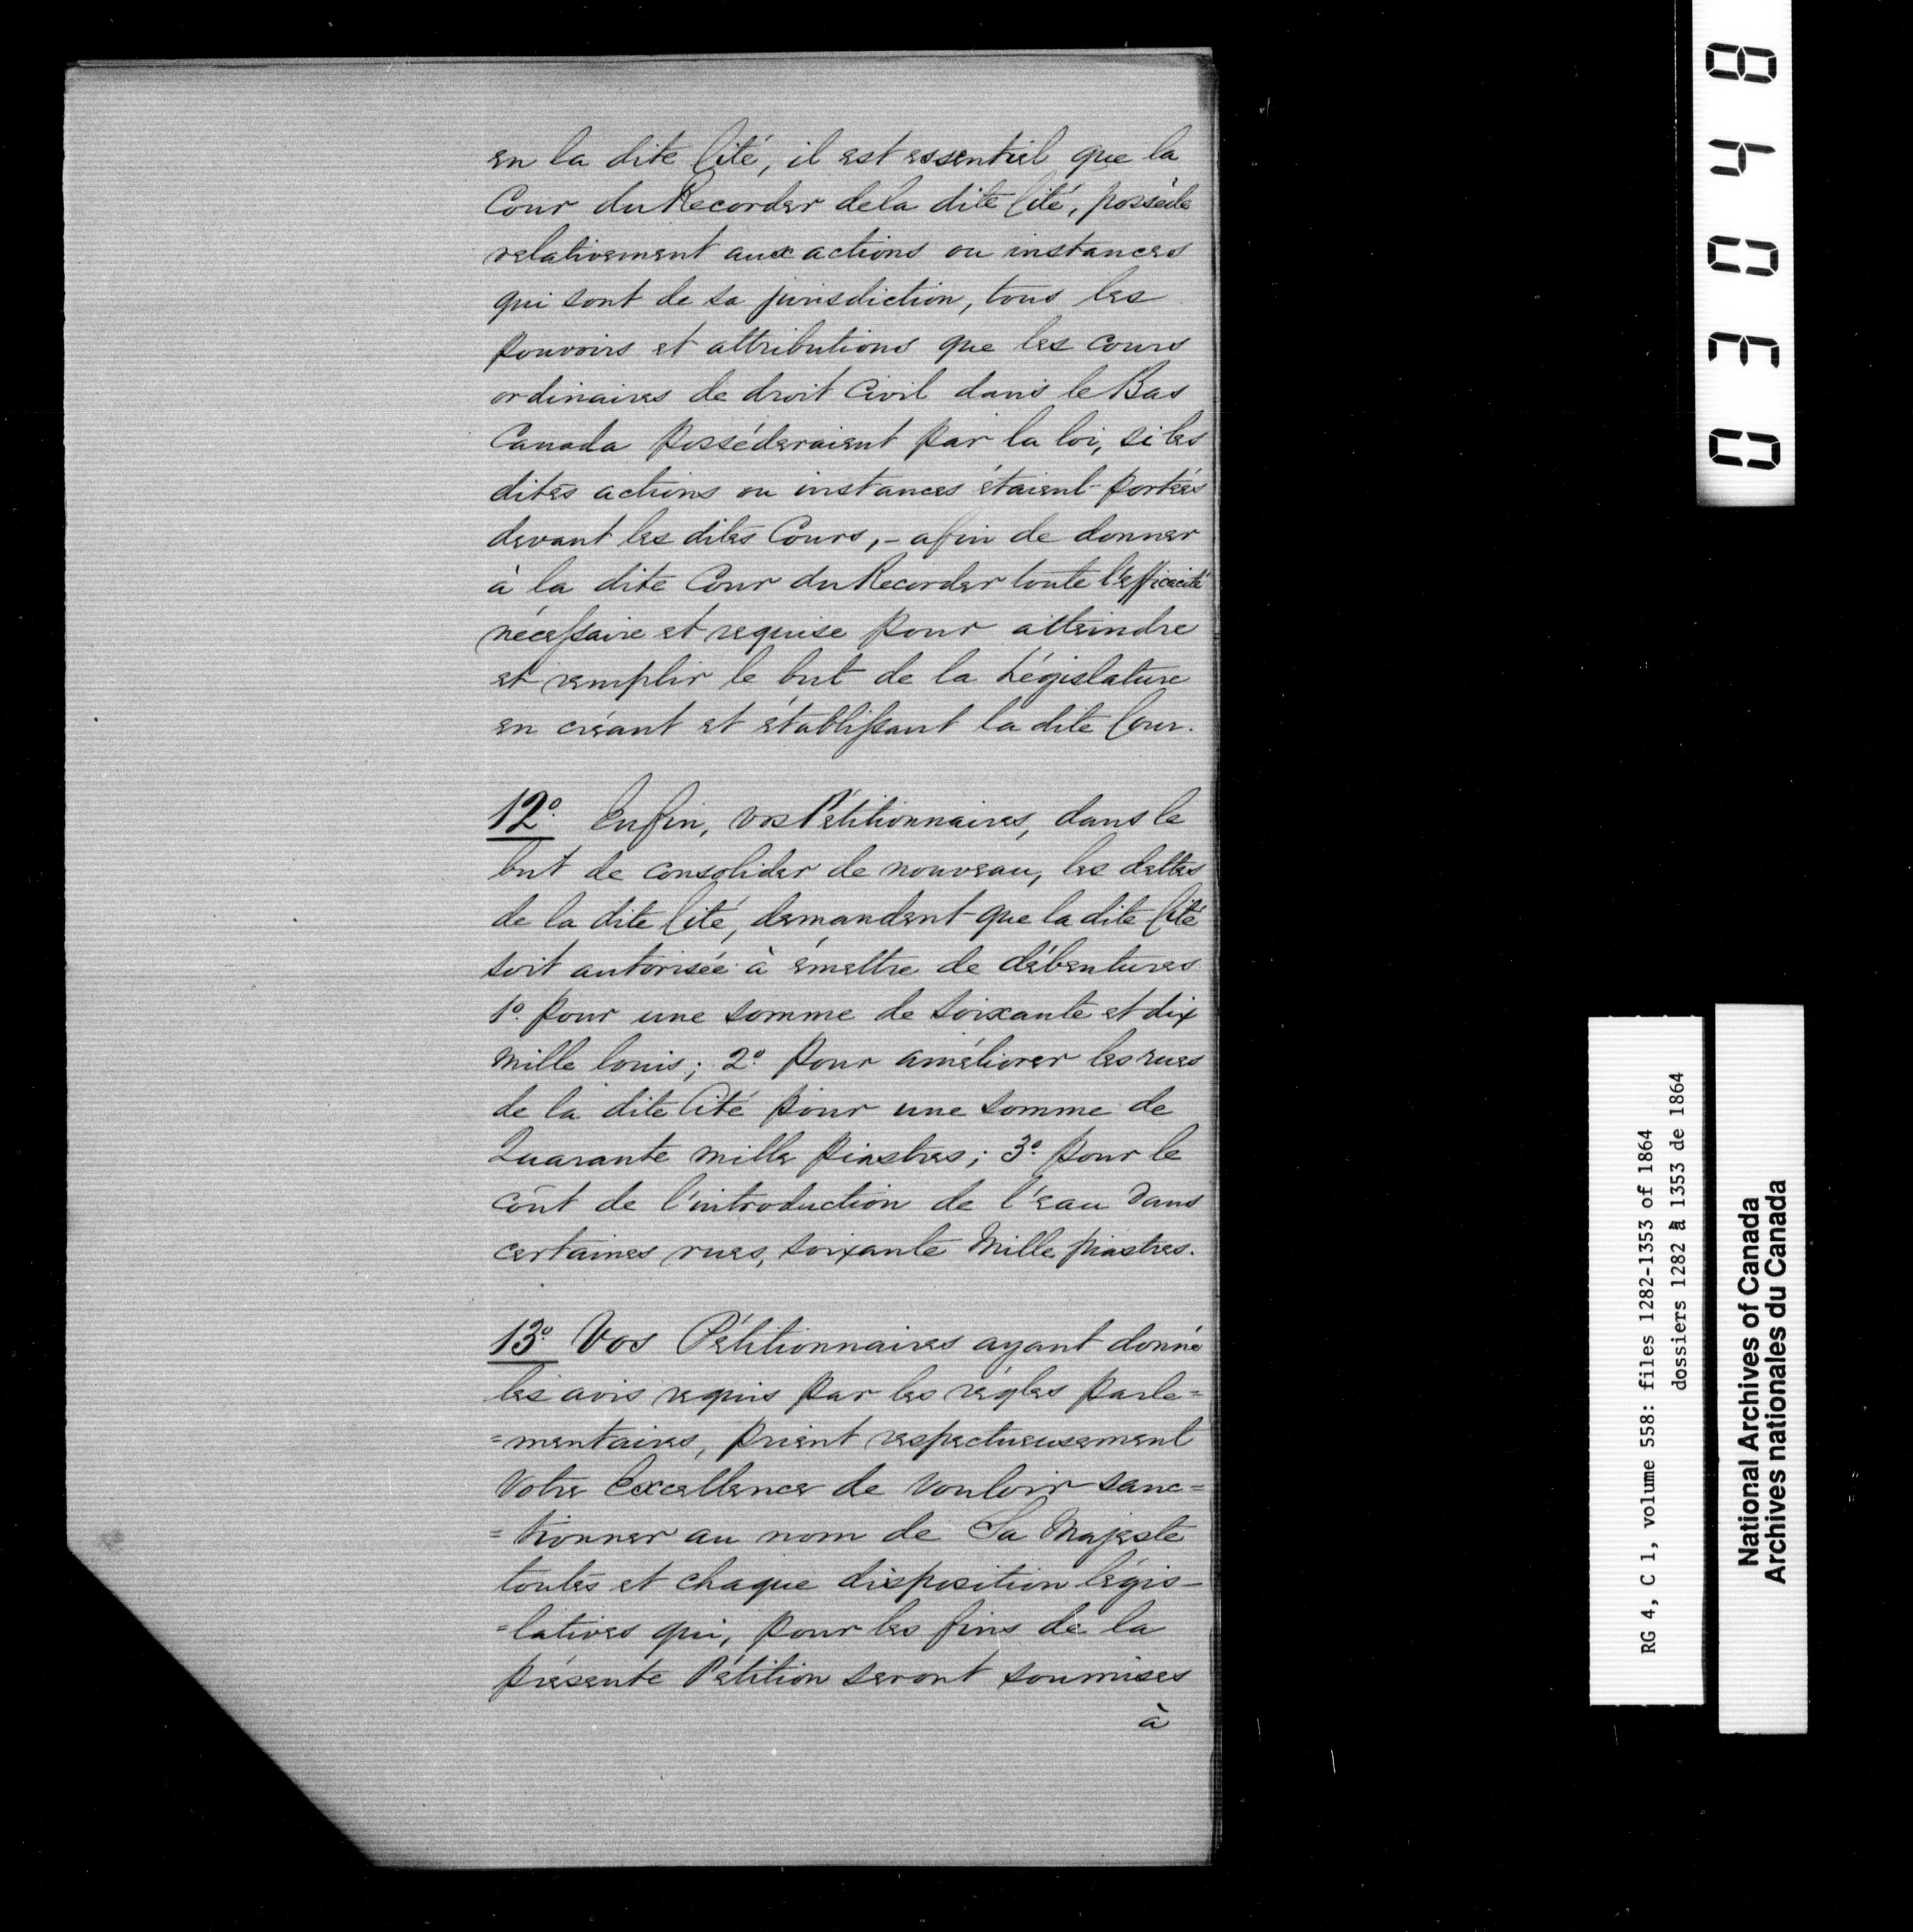 en la dite Cité, il est essentiel que la
Cour du Recorder de la dite Cité, possède
relativement aux actions ou instances
qui sont de sa jurisdiction, tous les
pouvoirs et attributions que les cours
ordinaires de droit Civil dans le Bas
Canada posséderaient par la loi, si les
dites actions ou instances étaient portées
devant les dites Cours,- afin de donner
à la dite Cour du Recorder toute l'efficacité
nécessaire et requise pour atteindre
et remplir le but de la Législature
en créant et établissant la dite Cour.
12º. Enfin, vos Pétitionnaires, dans le
but de consolider de nouveau, les dettes
de la dite Cité, demandent que la dite Cité
soit autorisée à émettre de débentures
1º. pour une somme de soixante et dix
mille louis; 2º. pour améliorer les rues
de la dite Cité pour une somme de
Quarante mille piastres; 3º. pour le
coût de l'introduction de l'eau dans
certaines rues, soixante Mille piastres.
13º. Vos Pétitionnaires ayant donné
les avis requis par les règles parle=
=mentaires, prient respectueusement
Votre Excellence de vouloir sanc=
=tionner au nom de Sa Majesté
toutes et chaque disposition légis-
=latives qui, pour les fins de la
présente Pétition seront soumises
à
03048
RG 4, C 1, volume 558: files 1282-1353 of 1864
dossiers 1282 à 1353 de 1864
National Archives of Canada
Archives nationales du Canada